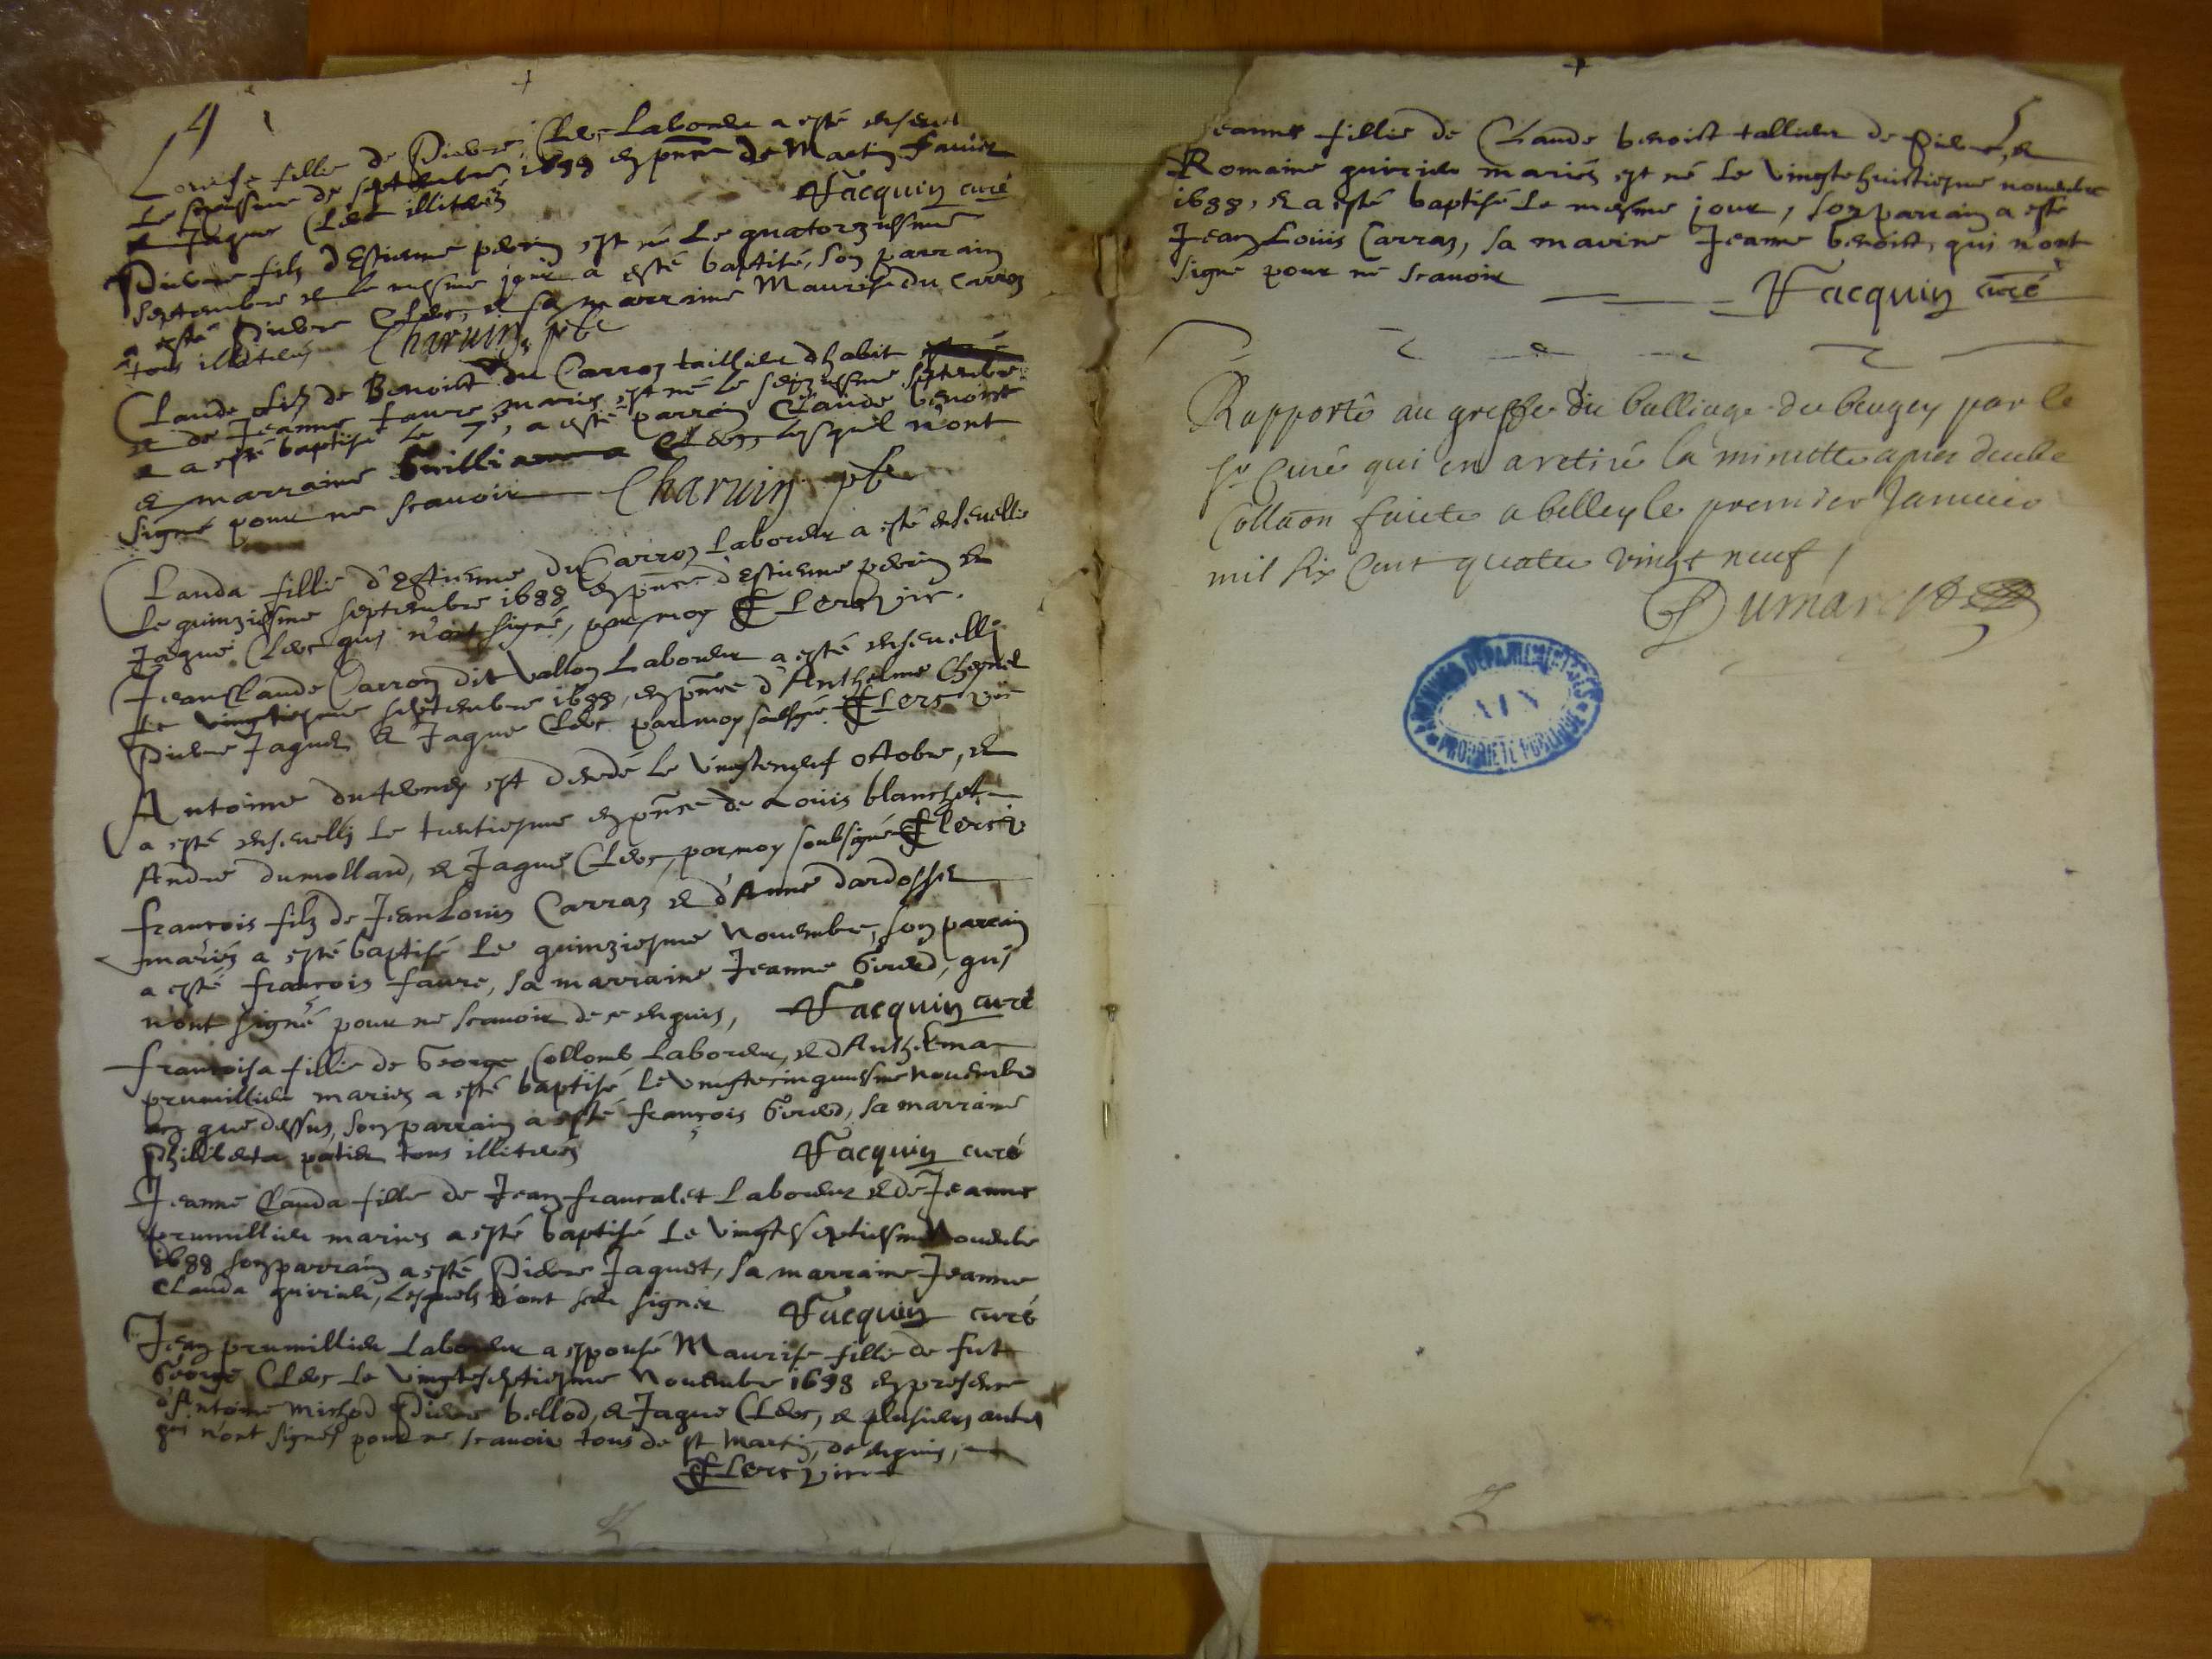 4
Louise fille de Pierre Clerc Laboureur a esté enseve
le septiesme de septembre 1688 en pnce de Martin Favier
et Jaque Clerc illiterés Jacquin curé
Pierre filz d'Estienne perrin est né le quatorziesme
septembre et le mesme jour a esté baptisé, son parrain
a esté Pierre Clerc, et sa marraine Maurise du Carroz
tous illiterés Charvin pbre
Claude filz de Benoist du Carroz taillieur d'habit
et de Jeanne faure mariés est né le seiziesme septembre
et a esté baptisé le 7e, a esté parrain Claude benoist
et marraine Guilli Clerc lesquel n'ont
signé pour ne scavoir Charvin pbre
Clauda fillie d'Estienne du Carroz Laboureur a esté ensevellie
Le quinziesme septembre 1688 en pnce d'estienne perrin et
Jaque Clerc qui n'ont signé, par moy Clerc vic.
Jean Claude Carron dit vallon Laboureur a esté ensevelli
le vingtiesme septembre 1688, en pnce d'Anthelme Chesnel
Pierre Jaquet & Jaque Clerc par moy soubsigné Clerc vic
Antoine duterney est decedé le vingteneuf ottobre, et
a esté ensevelli le trentiesme en pnce de Louis blanchet
Andre dumollard, et Jaque Clerc, par moy soubsigné Clerc v
francois filz de Jean Louis Carraz et d'Anne dardossel
mariés a esté baptisé le quinziesme Novembre, son parrain
a esté francois faure, sa marraine Jeanne Girerd, qui
n'ont signé pour ne scavoir de ce enquis, Jacquin curé
francoisa fillie de George Collomb Laboureur, et d'Anthelma
prumillieu mariés a esté baptisé le vingtecinquiesme novembre
an que dessus, son parrain a esté françois Girerd, sa marraine
Philiberta patier tous illiterés Jacquin curé
Jeanne Clauda fille de Jean francalet Laboureur et de Jeanne
prumillieu mariés a esté baptisé le vingteseptiesme Novembre
1688 son parrain a esté Pierre Jaquet, sa marraine Jeanne
Clauda guirieu, lesquels n'ont sceu signer Jacquin curé
Jean prumillieu Laboureur a espousé Maurise fille de fut
George Clerc le vingteseptiesme Novembre 1688 en presence
d'Antoine michod Pierre bellod, et Jaque Clerc, et plusieurs autres
qui n'ont signés pour ne scavoir tous de st Martin, de enquis,
Clerc vic
5
Jeanne fillie de Claude benoist tallieur de pierre, et
Romaine guirieu mariés est né le vingtehuictiesme novembre
1688, et a esté baptisé le mesme jour, son parrain a esté
Jean Louis Carraz, sa marine Jeanne benoist, qui n'ont
signé pour ne scavoir
Jacquin curé
Rapporté au greffe du balliage du beugey par le
sr Curé qui en a retiré la minutte apres deube
Collaon faicte a belley le premier Janvier
mil six Cent quatre vingt neuf
Dumarest
ARCHIVES DÉPARTEMENTALES
AIN
PROPRIÉTÉ PUBLIQUE